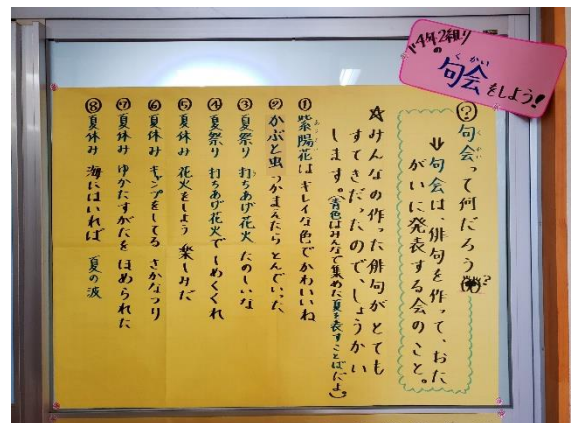 4年2組の
くかい
句会をしよう!
?句会って何だろう?
くかい
⇓句会は、俳句を作って、おた
がいに発表する会のこと。
☆みんなの作った俳句がとても
すてきだったので、しょうかい
します。(青色はみんなで集めた夏を表すことばだよ。)
①紫陽花はキレイな色でかわいいね
②かぶと虫つかまえたらとんでいった
③夏祭り 打ちあげ花火 たのしいな
④夏祭り 打ちあげ花火でしめくくれ
⑤夏休み 花火をしよう 楽しみだ
⑥夏休み キャンプをしてる さかなつり
⑦夏休み ゆかたすがたを ほめられた
⑧夏休み 海にはいれば 夏の波